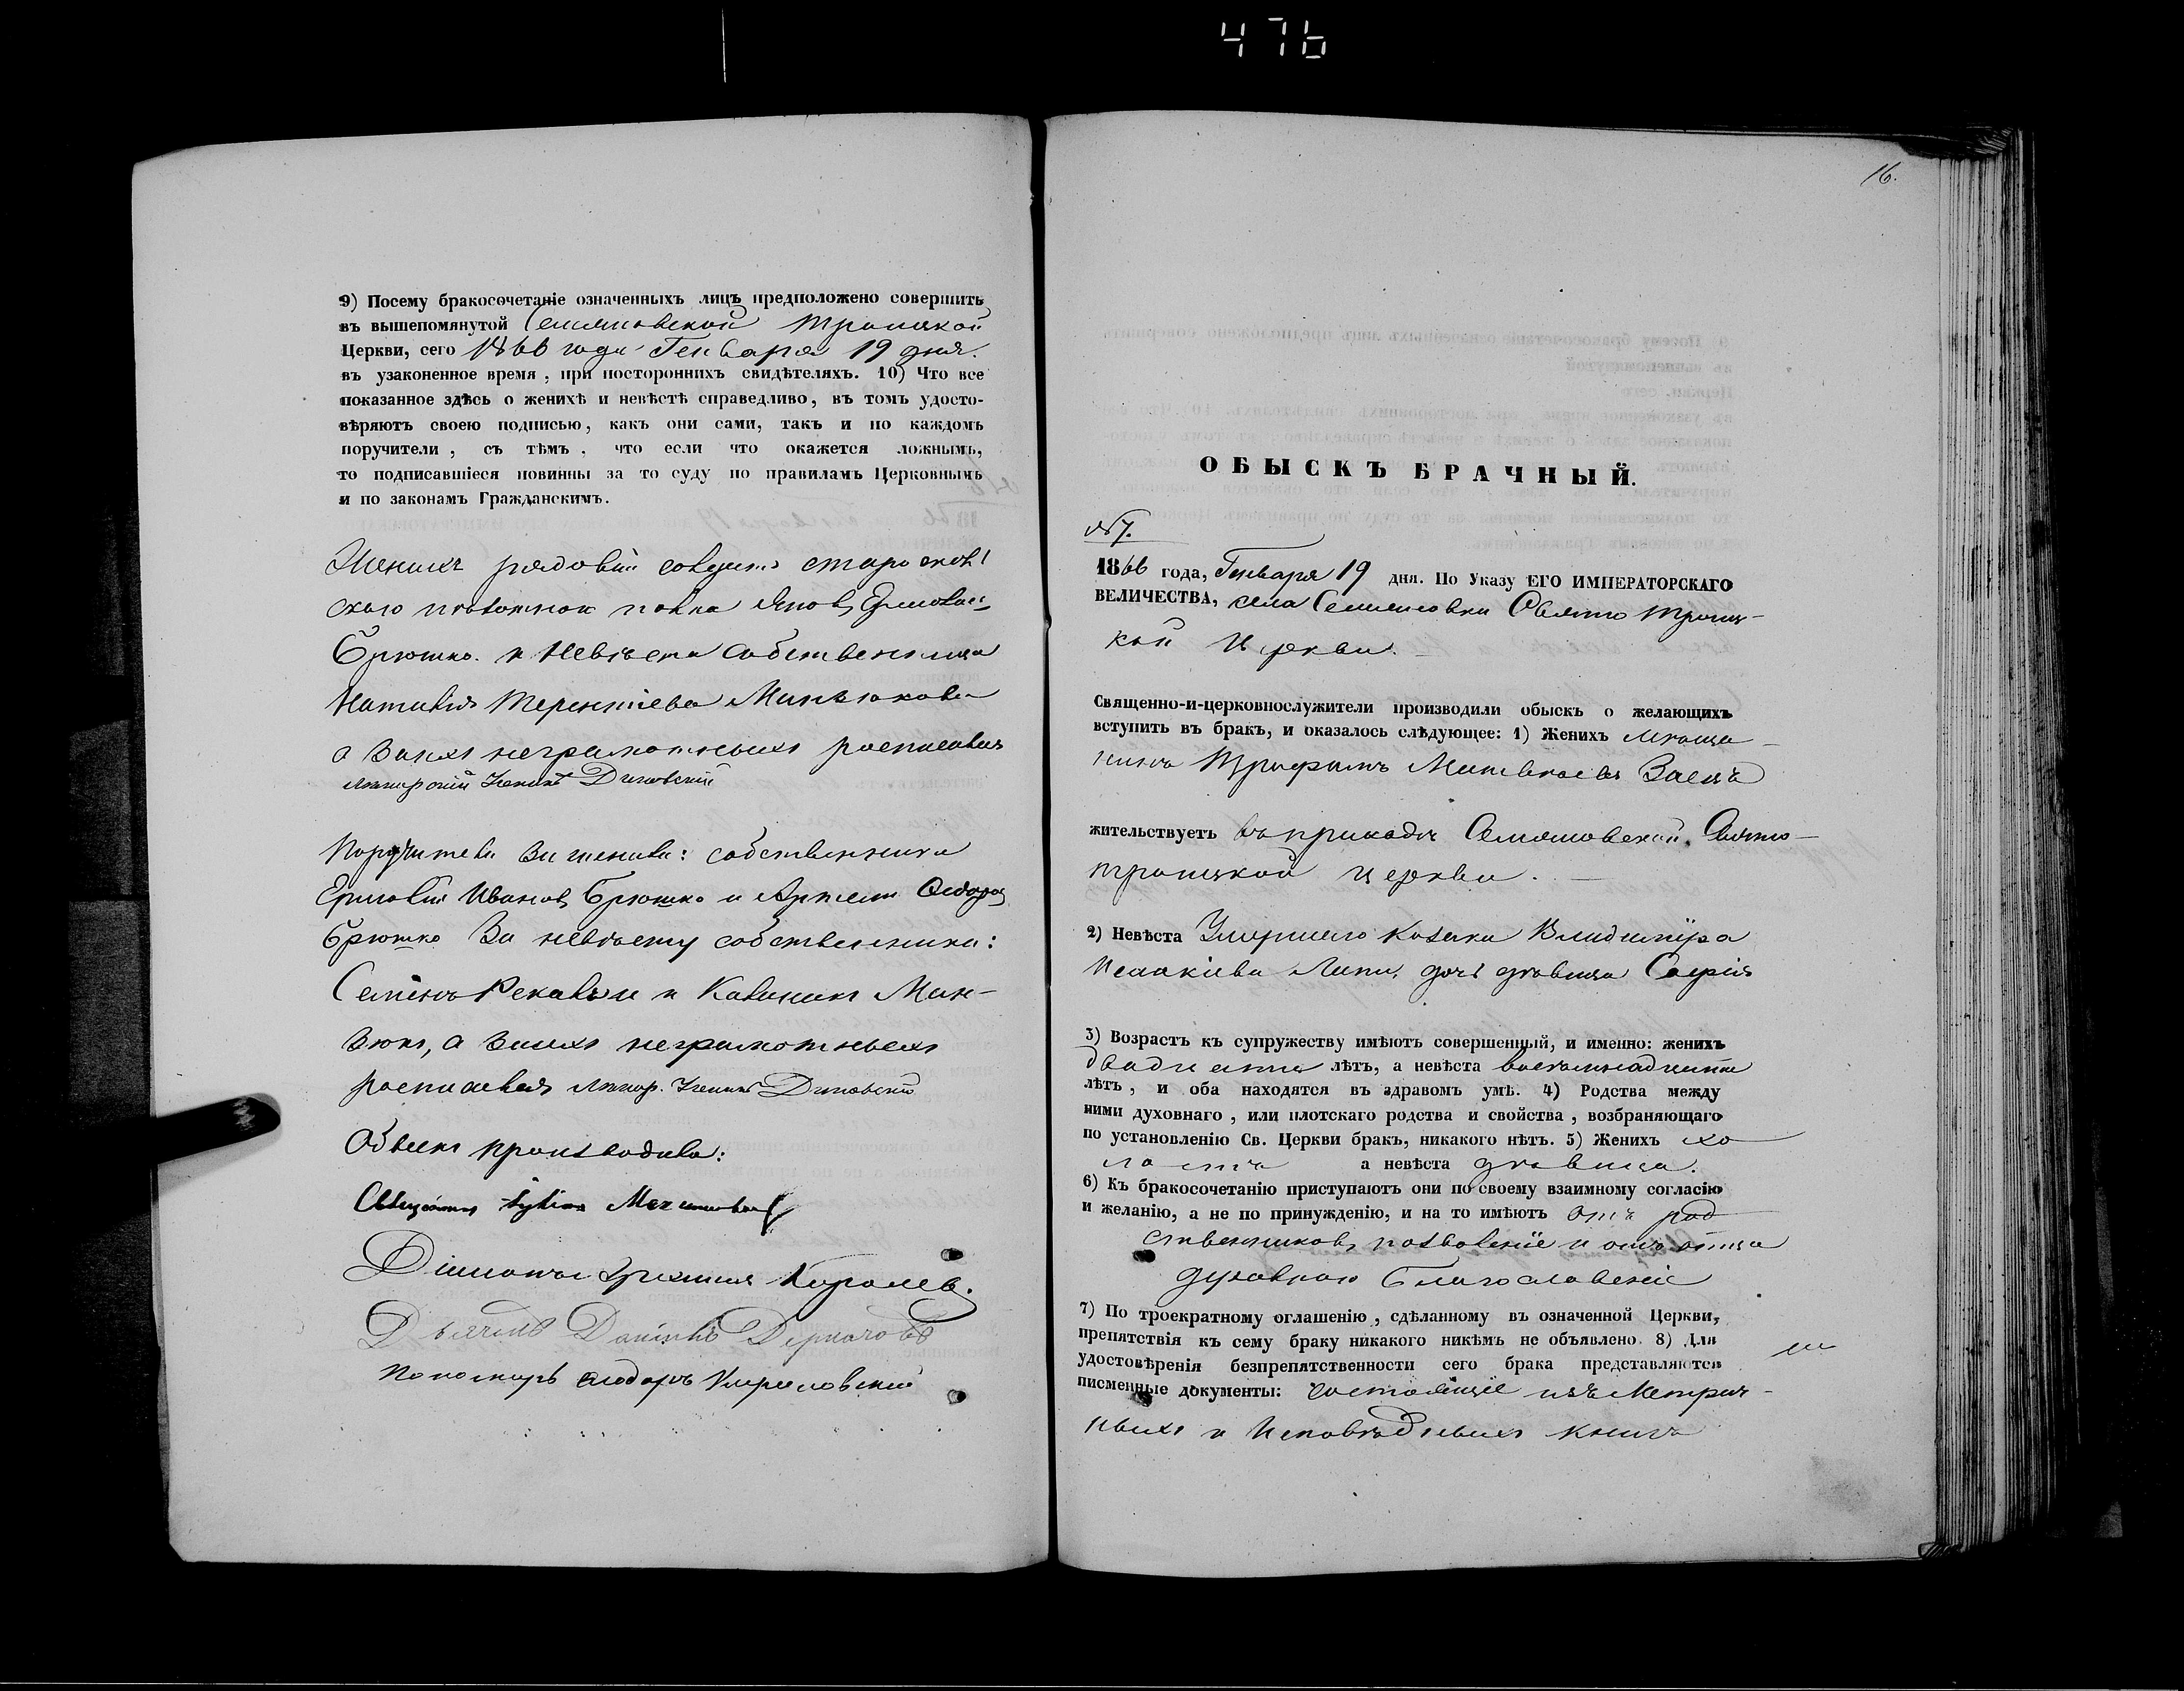 476
9) Посему бракосочетаніе означенныхъ лицъ предположено совершить
въ вышепомянутой Семяновской Троицкой
Церкви, сего 1866 года Генваря 19 дня.
въ узаконенное время, при постороннихъ свидѣтеляхъ. 10) Что все
показанное здѣсь о женихѣ и невѣстѣ справедливо, въ томъ удосто-
вѣряютъ своею подписью, какъ они сами, такъ и по каждомъ
поручители, съ тѣмъ, что если что окажется ложнымъ,
то подписавшіеся повинны за то суду по правиламъ Церковнымъ
и по законамъ Гражданскимъ.
Женихъ рядовый солдатъ
полка Яковъ Ермолаевъ
Брюшко и Невѣста собственница
Наталія Терентіева Минзюкова
а за ихъ неграмотныхъ росписался
Поручители за жениха: собственники
Ермолай Ивановъ Брюшко и Артемъ Федоровъ
Брюшко За невѣсту собственники:
Семенъ и Калиникъ Мин-
зюкъ, а за ихъ неграмотныхъ
росписался
Обыскъ производили:
Священникъ
Діаконъ Королев.
Дьячекъ Даніилъ Дерначовъ
Пономарь Федоръ
16.
ОБЫСКЪ БРАЧНЫЙ.
№7.
1866 года, Генваря 19 дня. По Указу ЕГО ИМПЕРАТОРСКАГО
ВЕЛИЧЕСТВА, села Семяновки Свято Троиц-
кой Церкви.
Священно-и-церковнослужители производили обыскъ о желающихъ
вступить въ бракъ, и оказалось слѣдующее: 1) Женихъ мѣща-
нинъ Трифонъ Матвѣевъ Заецъ
жительствуетъ въ приходѣ Семяновской Свято-
троицкой церкви.
2) Невѣста Умершаго козака Владиміра
Исаакіева дочь дѣвица Софія
3) Возрастъ къ супружеству имѣютъ совершенный, и именно: женихъ
двадцати лѣтъ, а невѣста восемнадцати
лѣтъ, и оба находятся въ здравомъ умѣ. 4) Родства между
ними духовнаго, или плотскаго родства и свойства, возбраняющаго
по установленію Св. Церкви бракъ, никакого нѣтъ. 5) Женихъ хо
лостъ а невѣста дѣвица.
6) Къ бракосочетанію приступаютъ они по своему взаимному согласію
и желанію, а не по принужденію, и на то имѣютъ отъ род
ственниковъ позволеніе и отъ отца
духовнаго благословеніе
7) По троекратному оглашенію, сдѣланному въ означенной Церкви,
препятствія къ сему браку никакого никѣмъ не объявлено. 8) Для
удостовѣренія безпрепятственности сего брака представляются
писменные документы: состоящіе изъ Метрич-
ныхъ и Исповѣдныхъ книгъ